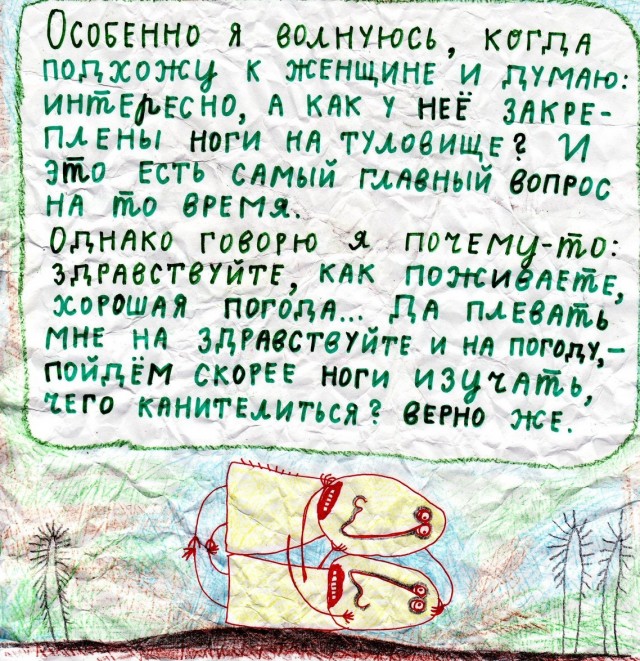 Особенно я волнуюсь, когда
подхожу к женщине и думаю:
интересно, а как у неё закре-
плены ноги на туловище? И
это есть самый главный вопрос
на то время.
Однако говорю я почему-то:
здравствуйте, как поживаете,
хорошая погода... Да плевать
мне на здравствуйте и на погоду,–
пойдём скорее ноги изучать,
чего канителиться? верно же.